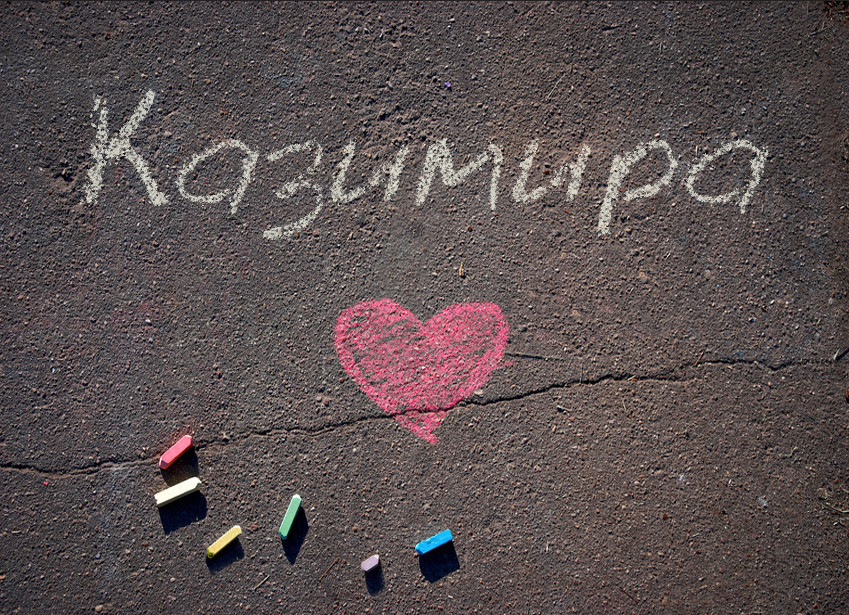 Казимира